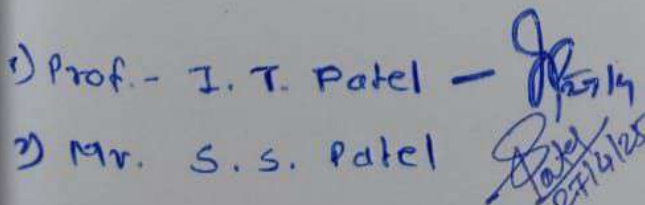 1) Prof. - I. T. Patel - 27/4
2) Mr. S. S. Patel Patel 27/4/25